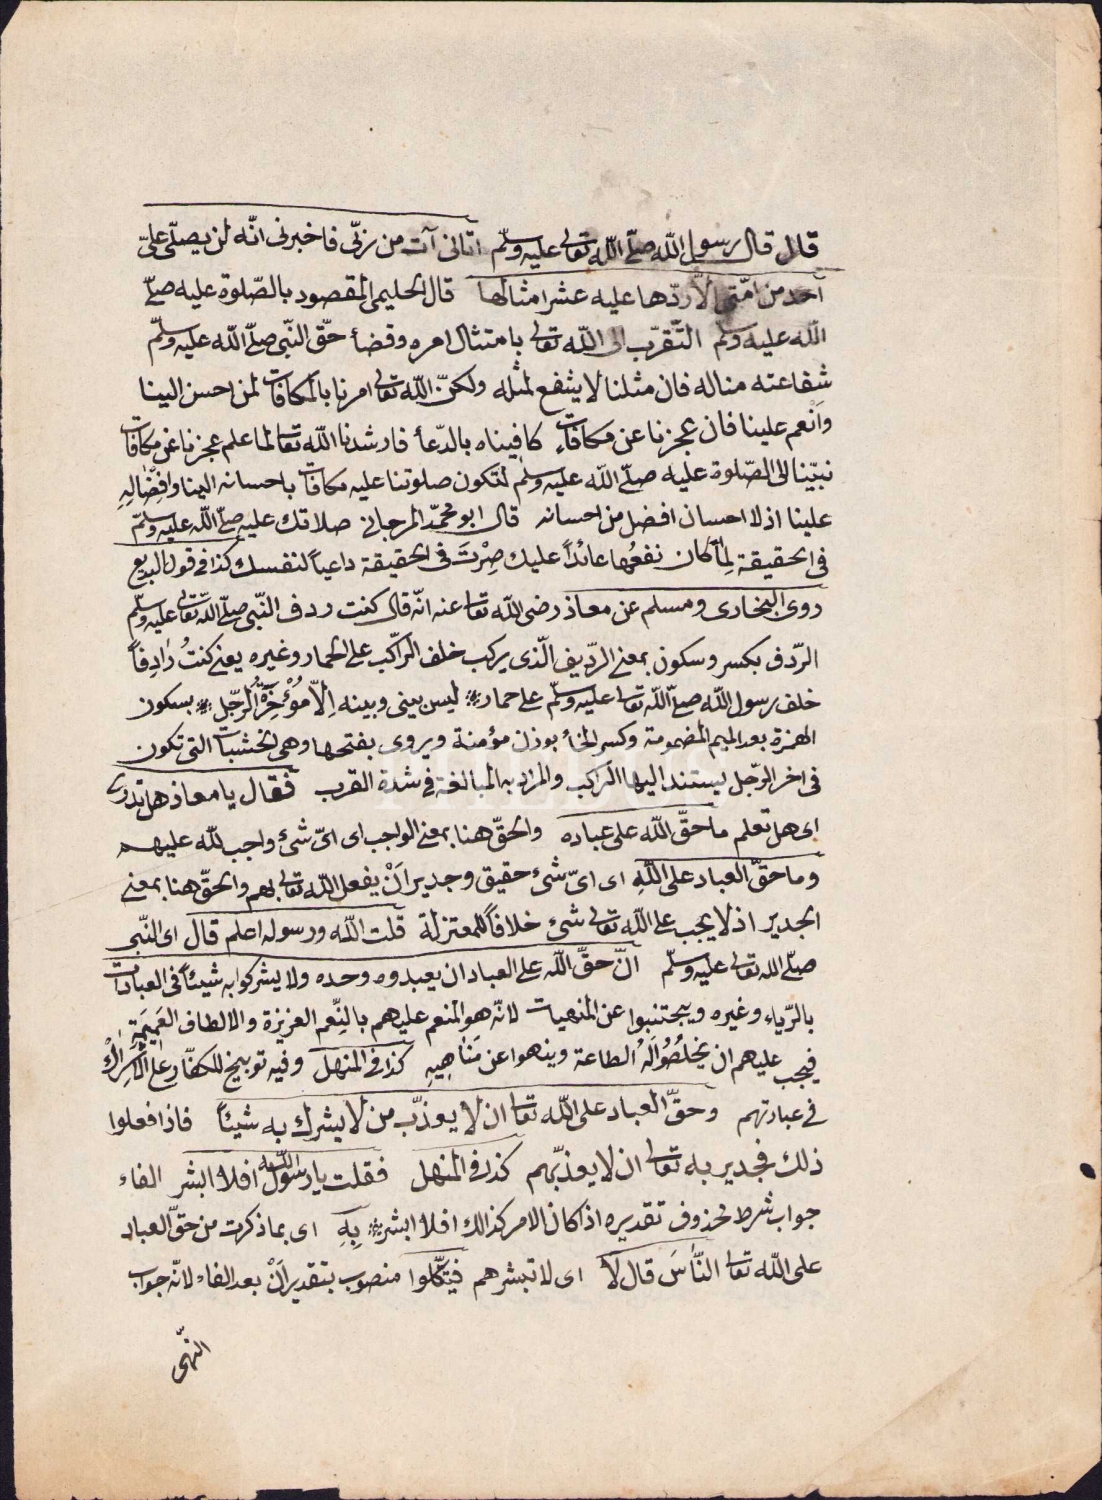 قال قال رسول الله صلّى الله تعالى عليه وسلّم اتانى آت من ربّى فاخبرنى انّه لن يصلّى علىّ
احد من امّتى الاّ ردّها عليه عشر امثالها قال الحليمى المقصود بالصّلوة عليه صلّى
الله عليه وسلّم التّقرّب الى الله تعالى بامتثال امره وقضأ حقّ النّبى صلّى الله عليه وسلّم
شفاعته مناله فان مثلنا لا يشفع لمثله ولكنّ الله تعالى امرنا بالمكافات لمن احسن الينا
وانعم علينا فان عجزنا عن مكافات كافيناه بالدّعأ فارشدنا الله تعالى لما علم عجزنا عن مكافات
نبيّنا الى الصّلوة عليه صلّى الله عليه وسلّم لتكون صلوتنا عليه مكافات باحسانه الينا وافضاله
علينا اذ لا احسان افضل من احسانه قال ابو محمّد المرجانى صلاتك عليه صلّى الله عليه وسلّم
فى الحقيقة لمّا كان نفعها عائداً عليك صِرْتَ فى الحقيقة داعياً لنفسك كذا فى قول البديع
روى البخارى ومسلم عن معاذ رضى الله تعالى عنه انّه قال كنت ردف النّبى صلّى الله تعالى عليه وسلّم
الرّدف بكسر وسكون بمعنى الرّديف الّذى يركب خلف الرّاكب على الحمار وغيره يعنى كنتُ رَادِفاً
خلف رسول الله صلّى الله تعالى عليه وسلّم على حمار ليس بينى وبينه اِلاّ مُؤْخِرَةُ الرّحل بسكون
الهمزة بعد الميم المضمومة وكسر الخأ بوزن مؤمنة ويروى بفتحها وهى الخشبات التى تكون
فى اخر الرّحل يستند اليها الراكب والمراد به المبالغة فى شدة القرب فقال يا معاذ هل تدرى
اى هل تعلم ما حقّ الله على عباده والحقّ هنا بمعنى الواجب اى اىّ شئ واجب لله عليهم
وما حقّ العباد على اللهِ اى اىّ شئ حقيق وجدير اَنْ يفعل الله تعالى بهم والحقّ هنا بمعنى
الجدير اذ لا يجب على الله تعالى شئ خلافاً للمعتزلة قلت الله ورسوله اعلم قال اى النّبى
صلّى الله تعالى عليه وسلّم انّ حقّ الله على العباد ان يعبدوه وحده ولا يشركوا به شيئاً فى العبادات
بالرّياء وغيره ويجتنبوا عن المنهيات لانّه هو المنعم عليهم بالنِّعم العزيزة والالطاف العَمِيمَةِ
فيجب عليهم ان يخلصُوالَهُ الطاعة وينهوا عن مَنَاهِيهِ كذا فى المنهل وفيه توبيخ للكفّار على الاشراك
فى عبادتهم وحقّ العباد على الله تعالى ان لا يعذّب من لا يشرك به شيئاً فاذا فعلوا
ذلك فجدير به تعالى ان لا يعذّبهم كذا فى المنهل فقلت يا رسول الله افلا ابشر الفاء
جواب شرط محذوف تقديره اذا كان الامر كذالك افلا ابشر بِهِ اى بما ذكرت من حقّ العباد
على الله تعالى النّاسَ قال لا اى لا تبشرهم فيتّكلوا منصوب بتقدير اَنْ بعد الفاء لانّه جواب
النّهى